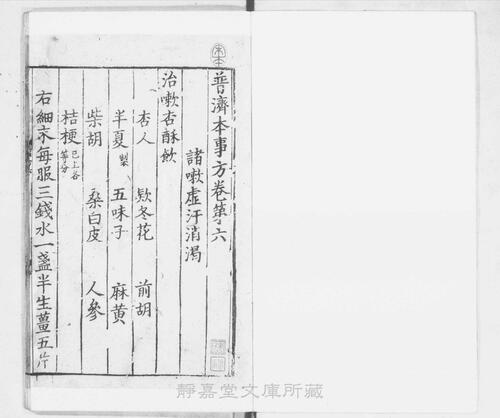 普濟本事方卷第六
諸嗽虛汗消渴
治嗽杏酥飲
杏人 欵冬花 前胡
半夏製 五味子 麻黄
柴胡 桑白皮 人參
桔梗已上各等分
右細末每服三錢水一盞半生薑五片
靜嘉堂文庫所藏